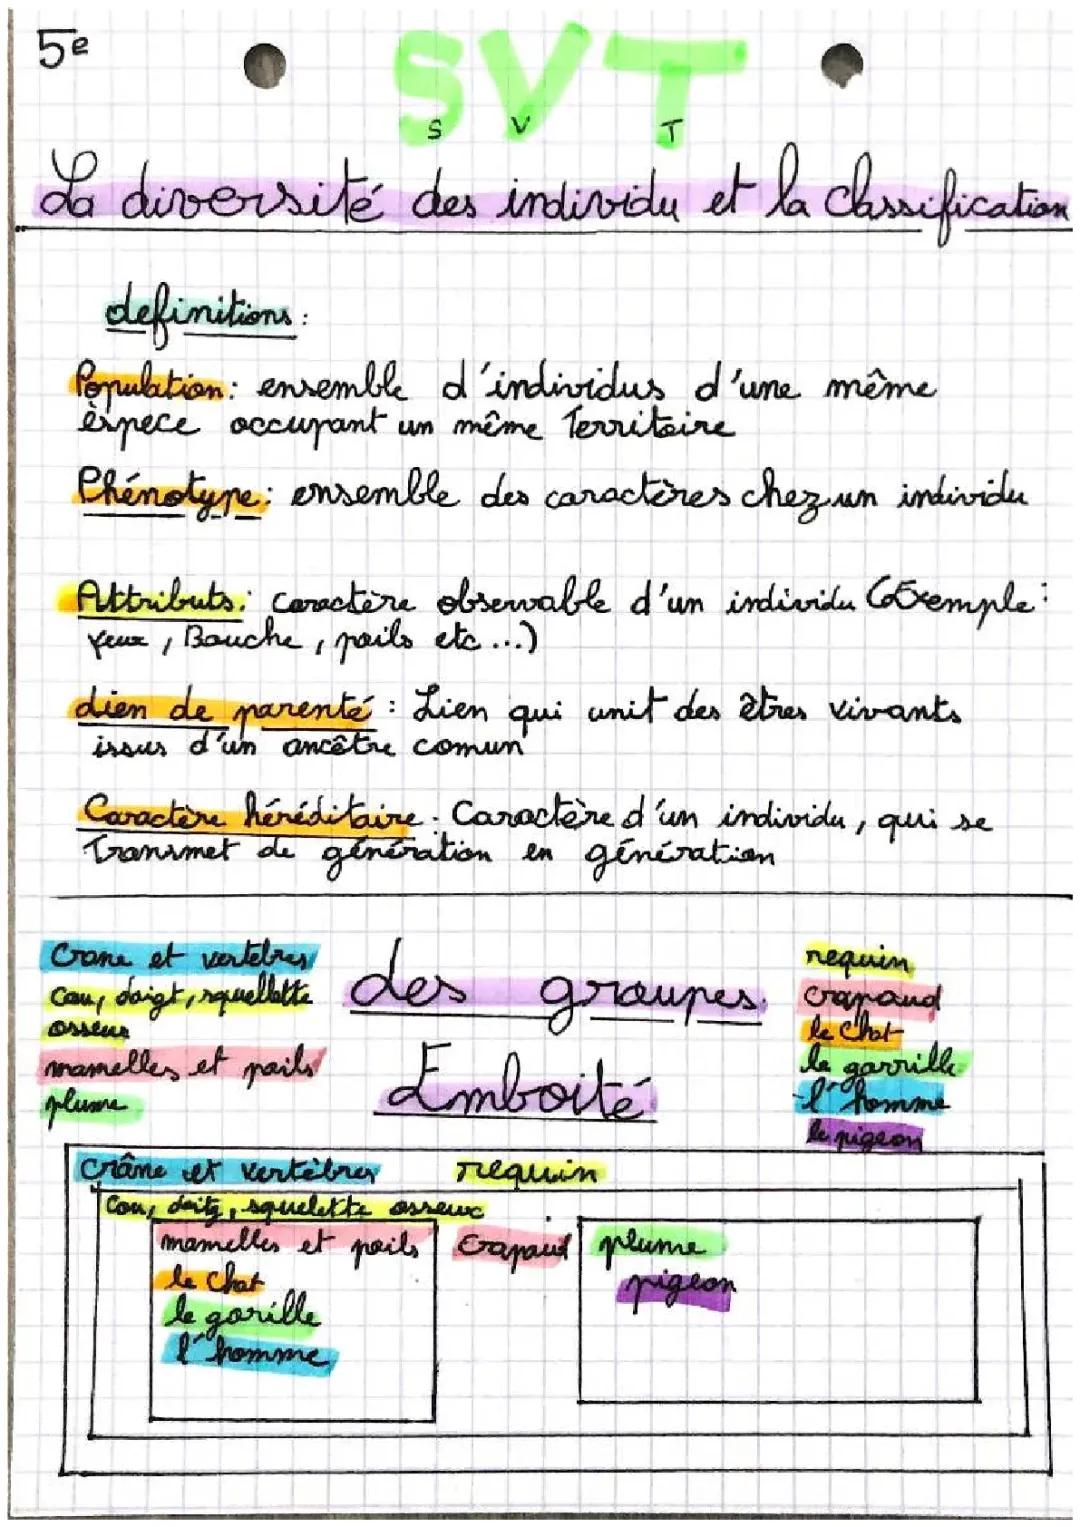 5e
SVT
S V T
La diversité des individu et la classification
definitions :
Population : ensemble d'individus d'une même
èspece occupant un même Territoire
Phénotype : ensemble des caractères chez un individu
Attributs : caractère observable d'un individu (Exemple :
yeux, Bouche, poils etc ...)
lien de parenté : Lien qui unit des êtres vivants
issus d'un ancêtre comun
Caractère héréditaire . Caractère d'un individu, qui se
Transmet de génération en génération
Crane et vertebres
Cou, doigt, squellette
osseux
mamelles et poils
plume
des groupes
Emboité
requin
crapaud
le chat
le gorrille
l'homme
le pigeon
Crâne et vertèbres requin
Cou, doitg, squelette osseux
mamelles et poils crapaud plume
le chat pigeon
le gorille
l'homme